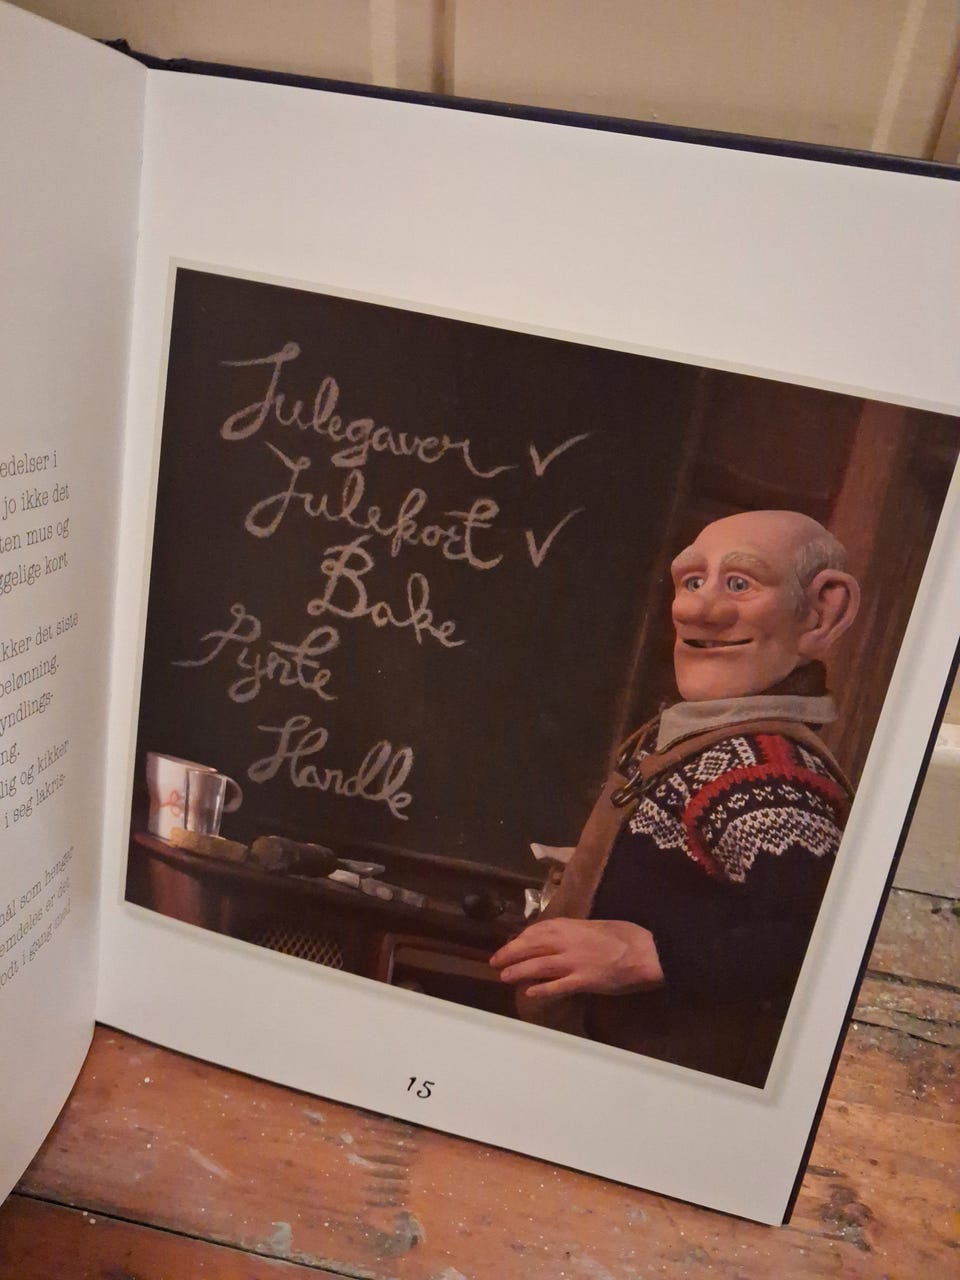 edelser i
jo ikke det
ten mus og
ggelige kort
kker det siste
belønning.
yndlings-
ng.
lig og kikker
i seg lakris-
mål som henger
emdeles er det
odt i gang med
Julegaver ✓
Julekort ✓
Bake
Pynte
Handle
15